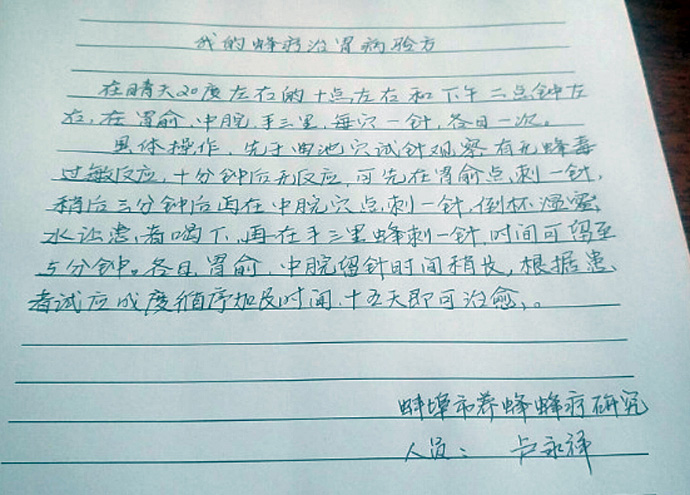 我的蜂疗治胃病验方
在晴天20度左右的十点左右和下午二点钟左
右，在胃俞、中脘、手三里，每穴一针，各日一次。
具体操作，先于曲池穴试针观察，有无蜂毒
过敏反应，十分钟后无反应，可先在胃俞点刺一针，
稍后三分钟后再在中脘穴点刺一针，倒杯温蜜
水让患者喝下，再在手三里蜂刺一针，时间可留至
5分钟。各日胃俞、中脘留针时间稍长，根据患
者试应成度循序加及时间，十五天即可治愈，。
蚌埠市养蜂蜂疗研究
人员：卢永祥